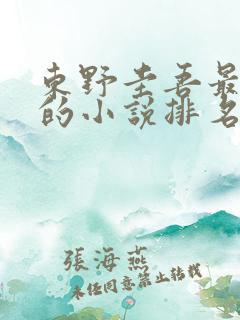 東野圭吾最
的小說排名
張海燕
未经同意禁止转载